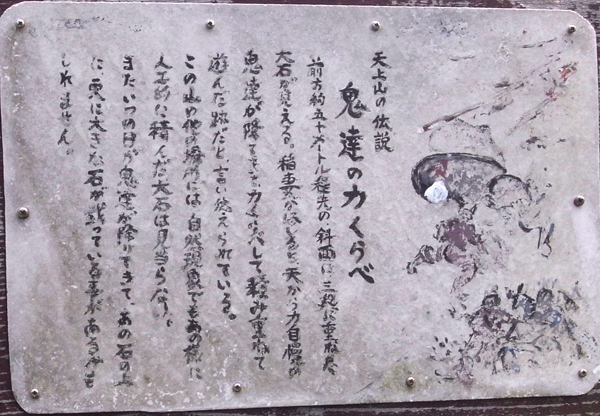 天上山の伝説
鬼達の力くらべ
前方約五十メートル程先の斜面に三段に重ねた
大石が見える。稲妻がはしると、天から力自慢の
鬼達が降りてきて力くらべして積み重ねて
遊んだ跡だと、言い伝えられている。
この山の他の場所には、自然現象でもあの様に
人工的に積んだ大石は見当らない。
またいつの日か鬼達が降りてきて、あの石の上
に、更に大きな石が載っている事があるかも
しれません。